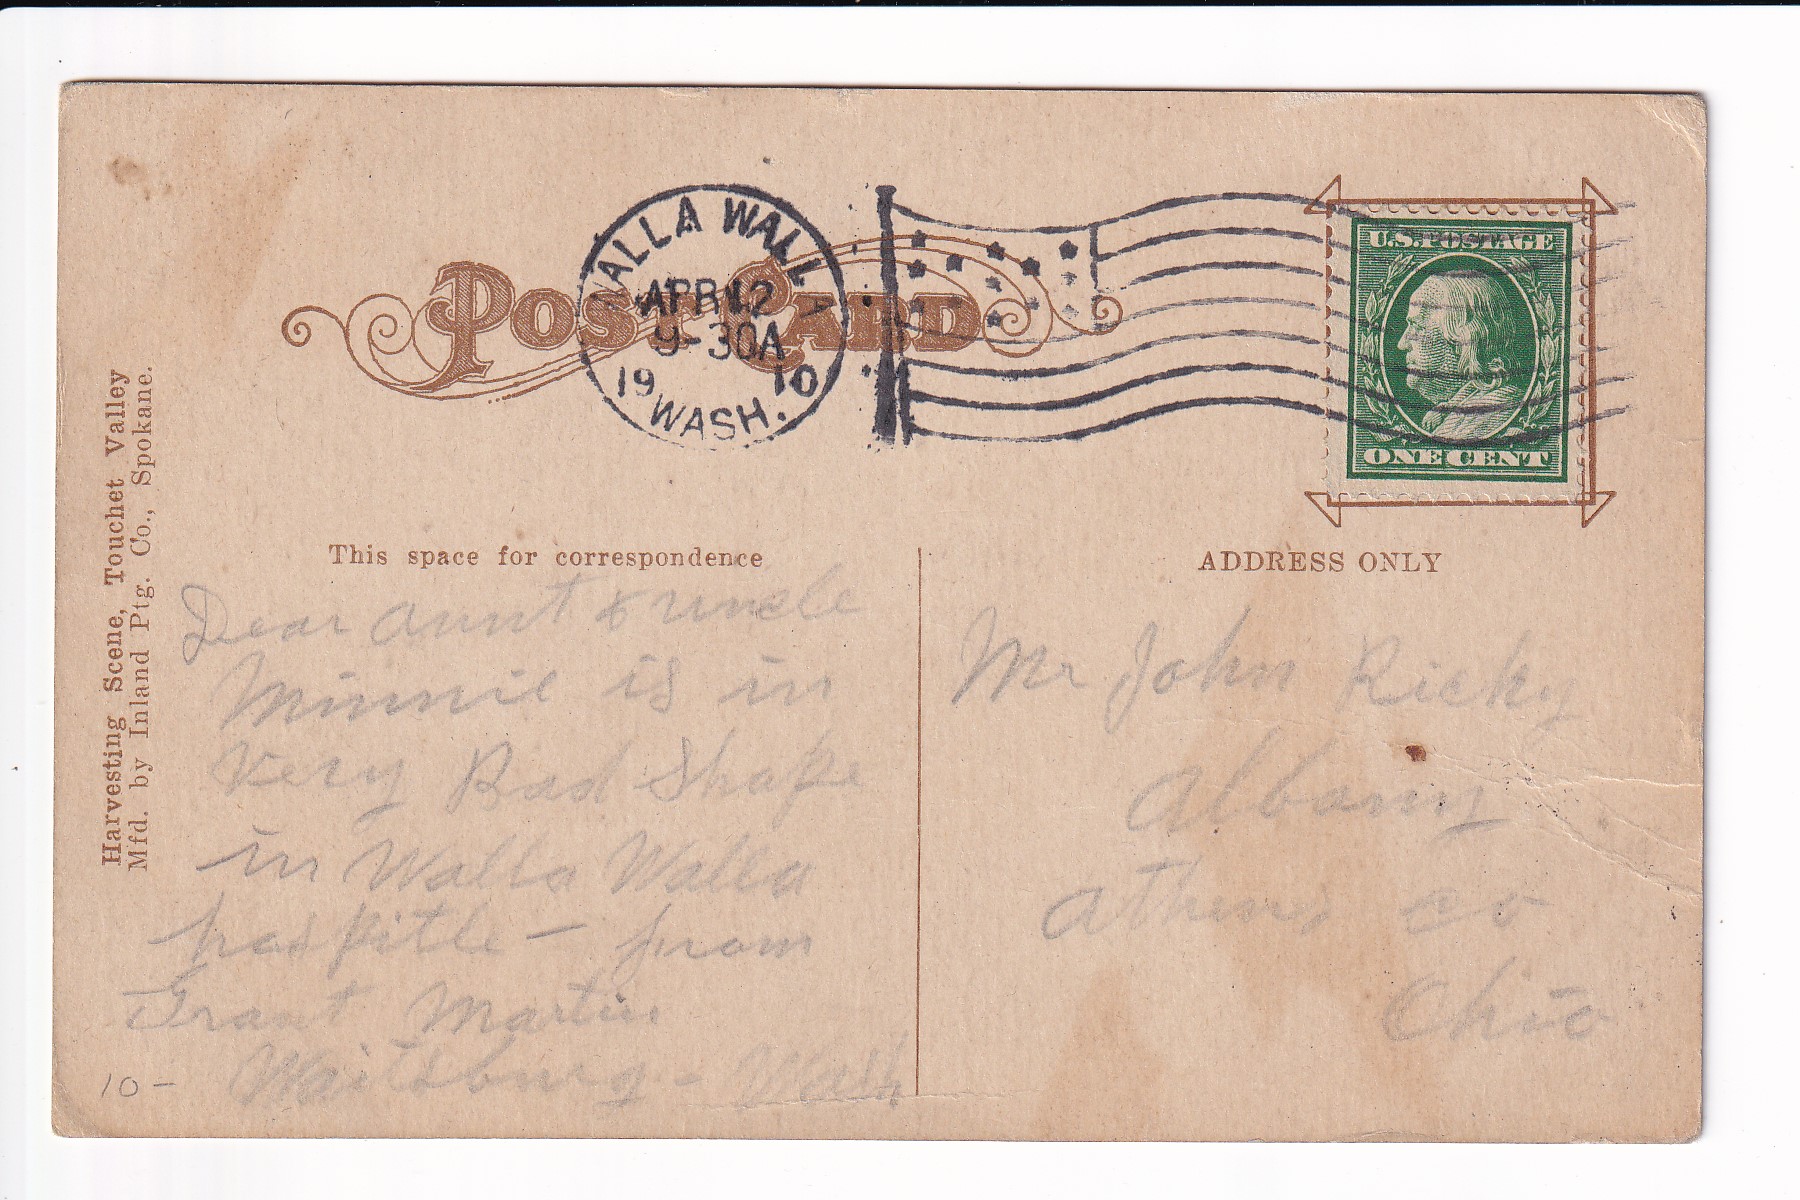 POST CARD
WALLA WALLA
APR 12
9-30A
19 10
WASH.
U.S. POSTAGE
ONE CENT
Harvesting Scene, Touchet Valley
Mfd. by Inland Ptg. Co., Spokane.
This space for correspondence
Dear aunt & uncle
Minnie is in
Very Bad Shape
in Walla Walla
hospitle – from
Grant Martin
Waitsburg - Wash
10 –
ADDRESS ONLY
Mr John Ricky
Albany
Athens co
Ohio